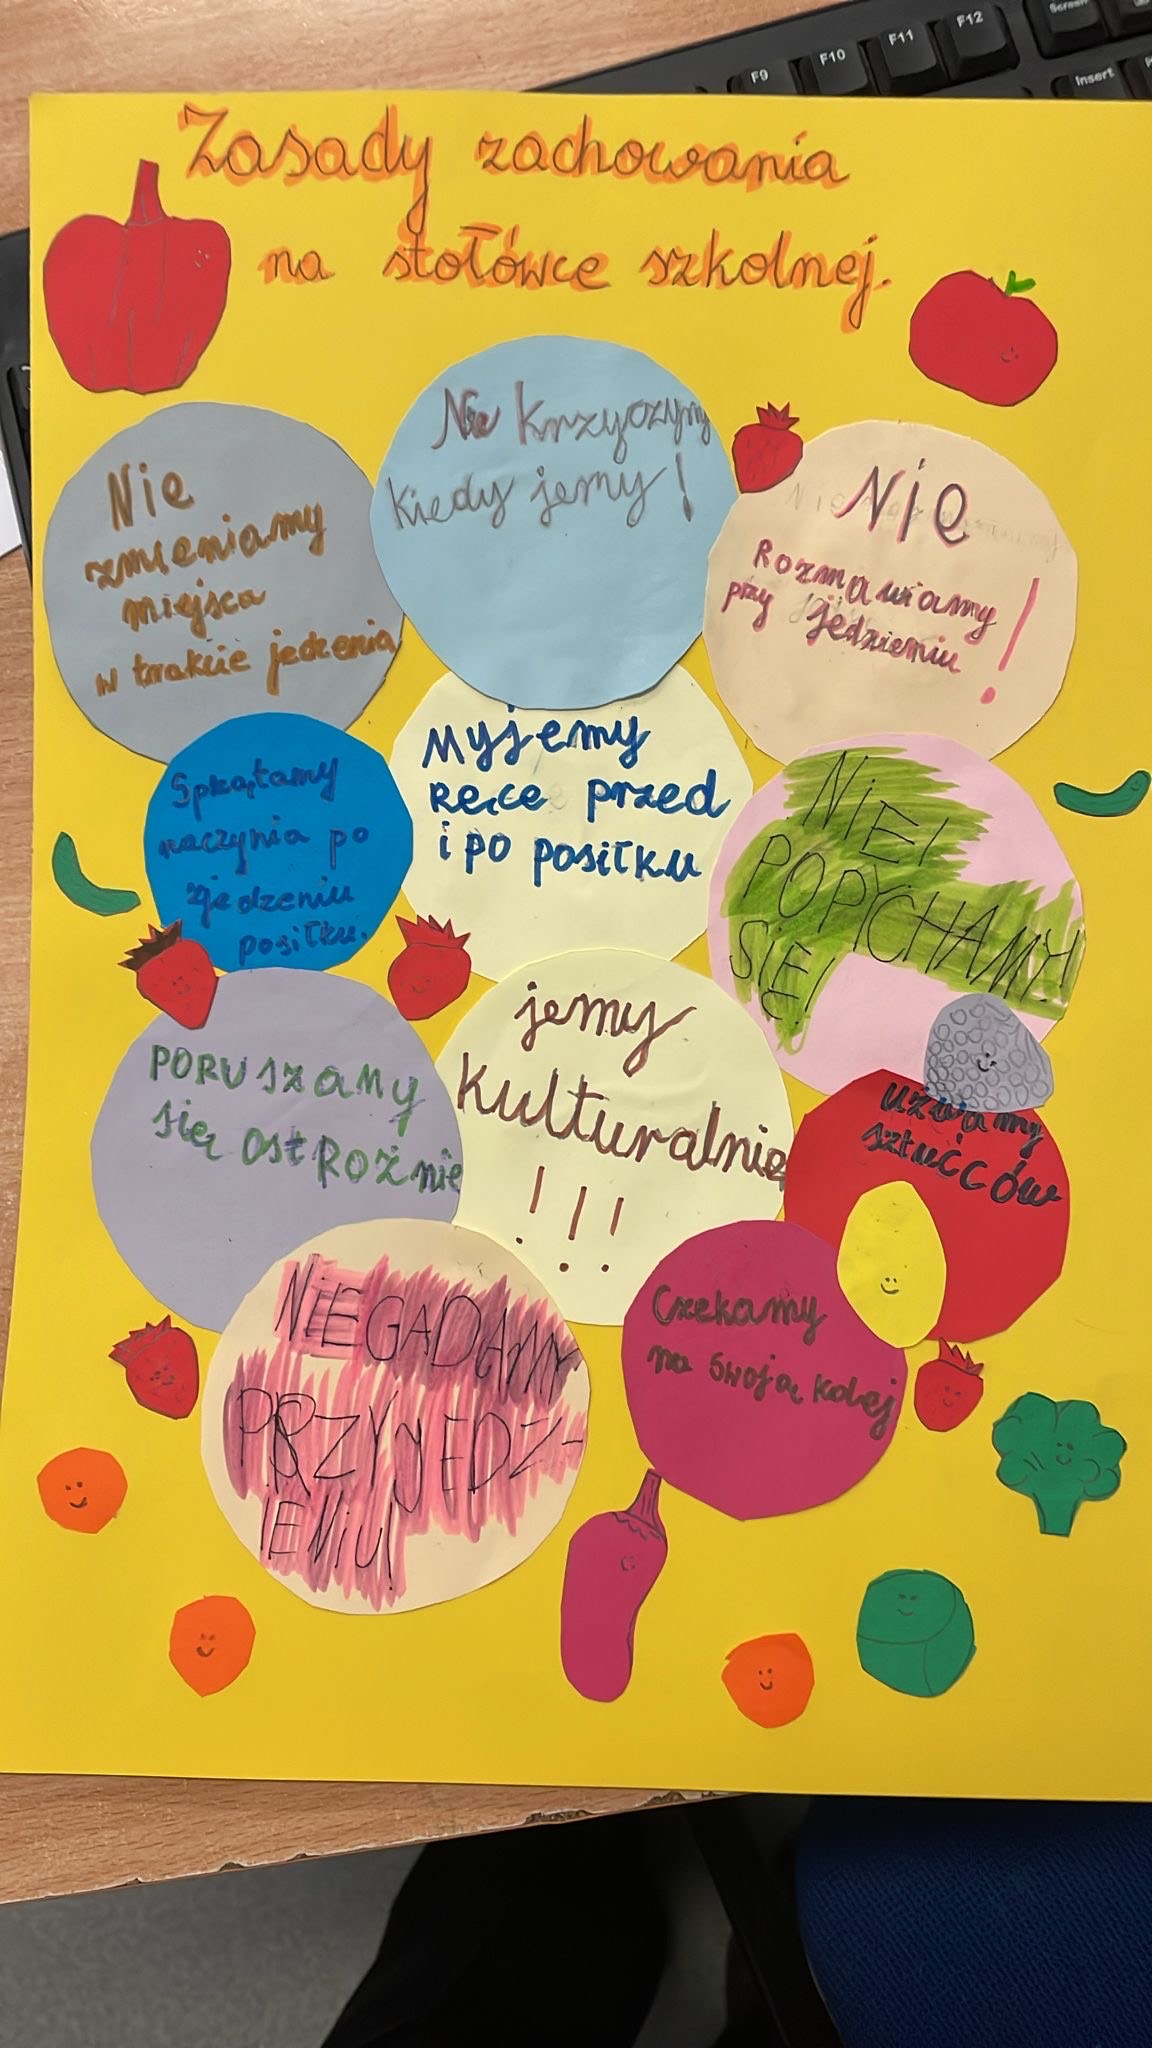 Zasady zachowania
na stołówce szkolnej.
Nie krzyczymy
kiedy jemy!
Nie
zmieniamy
miejsca
w trakcie jedzenia
NIE
Rozmawiamy
przy jedzieniu!
Myjemy
Ręce przed
i po posiłku
Sprzątamy
naczynia po
zjedzeniu
posiłku.
NIE!
POPYCHAMY!
SIĘ!
PORUszAMy
się OstROżnie
jemy
kulturalnie
!!!
używamy
sztućców
NIE GADAMY
PRZY JEDZ-
IENIU!
Czekamy
na swoją kolej
F9
F10
F11
F12
Screen
Insert